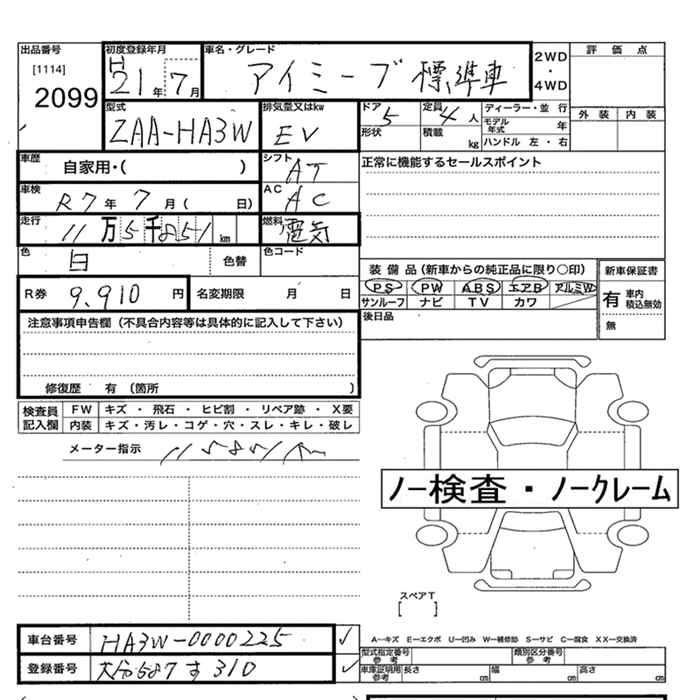 出品番号 初度登録年月 車名・グレード 2WD・4WD 評価点
[1114] H21年7月 アイミーブ 標準車
2099
型式 排気量又はkw ドア 5 定員 4人 ディーラー・並行 外装 内装
ZAA-HA3W EV 形状 積載 kg モデル年式 年
ハンドル 左・右
車歴 自家用・( ) シフト AT 正常に機能するセールスポイント
車検 R7年7月( 日) AC AC
走行 11万5千851km 燃料 電気
色 白 色替 色コード
装備品(新車からの純正品に限り○印) 新車保証書
R券 9,910円 名変期限 月 日 PS PW ABS エアB アルミW 有 車内積込無効
サンルーフ ナビ TV カワ 無
注意事項申告欄(不具合内容等は具体的に記入して下さい) 後日品
修復歴 有 (箇所 )
検査員記入欄 FW キズ・飛石・ヒビ割・リペア跡・X要
内装 キズ・汚レ・コゲ・穴・スレ・キレ・破レ
メーター指示 115851km
ノー検査・ノークレーム
スペアT
[ ]
車台番号 HA3W-0000225 ✓ A―キズ E―エクボ U―凹み W―補修跡 S―サビ C―腐食 XX―交換済
型式指定番号 参考 類別区分番号 参考
登録番号 大分587す310 ✓ 車庫証明用 参考 長さ cm 幅 cm 高さ cm